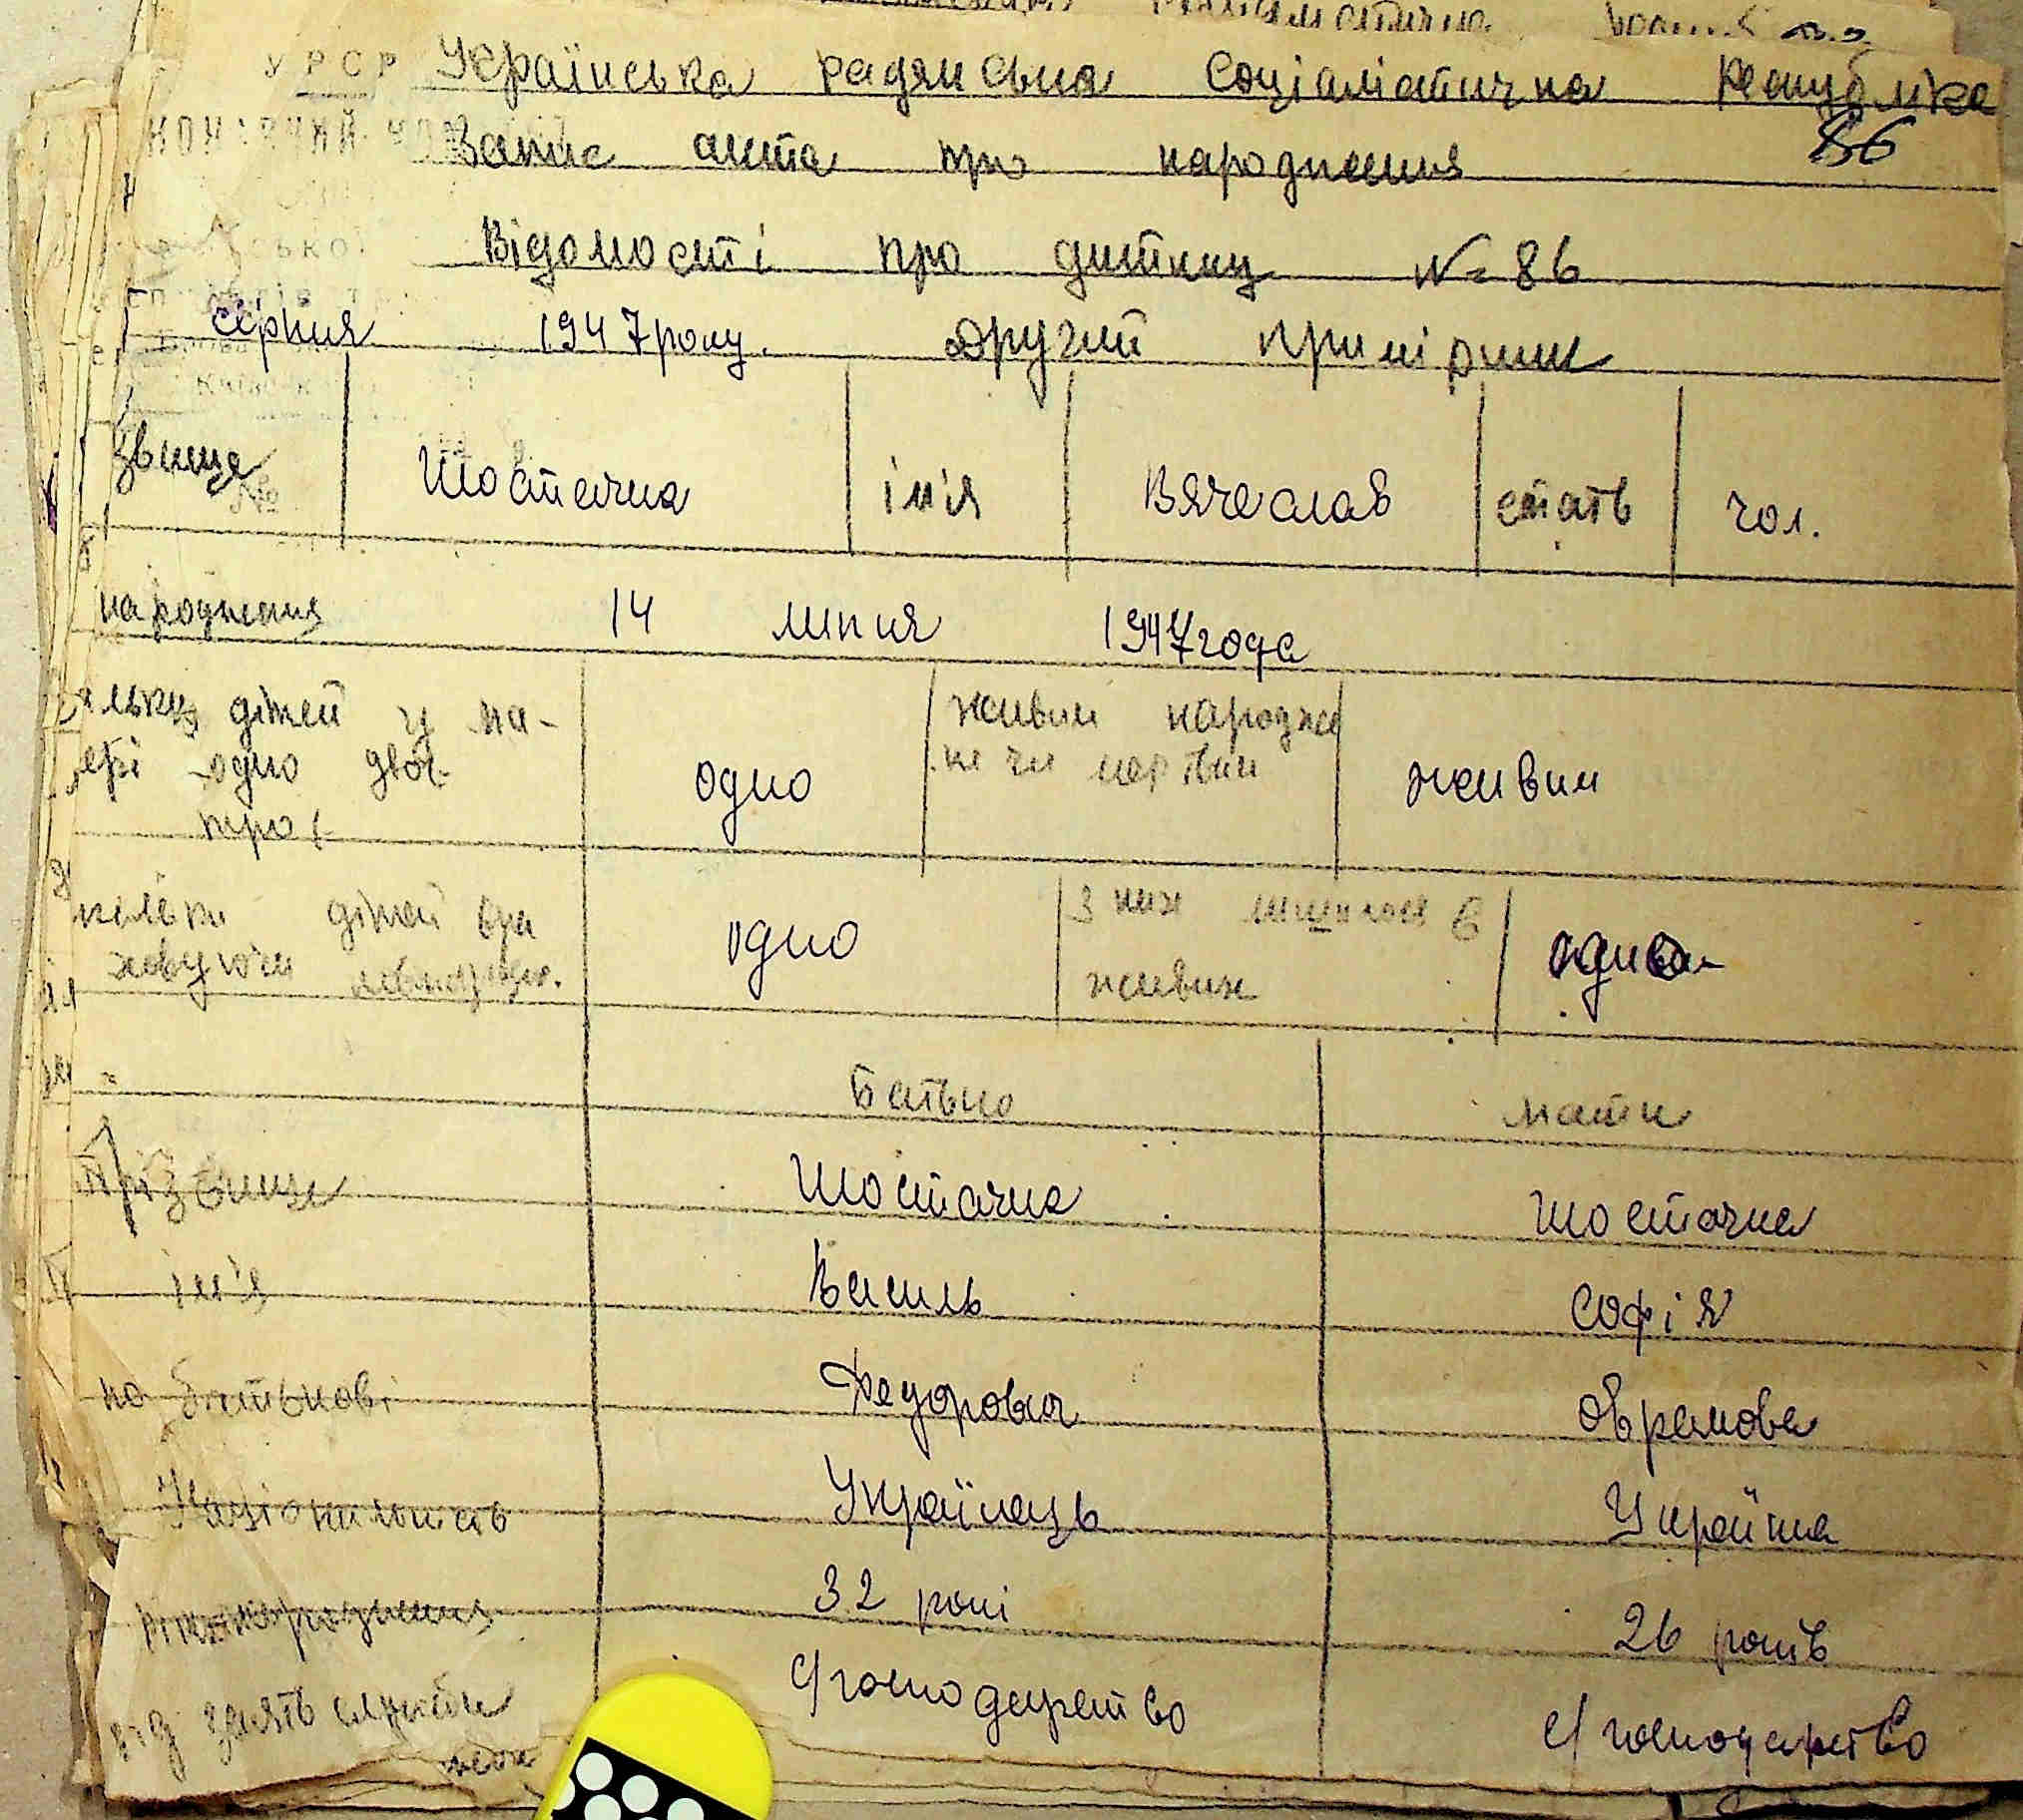 УРСР Українська радянська Соціалістична Республіка
Запис акта про народження 86
Відомості про дитину № 86
серпня 1947 року. Другий примірник
звище Шостачка ім'я Вячеслав стать чол.
народження 14 липня 1947 года
лькщ дітей у ма- живим народже
ері одно двоє одно не чи мертвим живим
троє
кільки дітей вра одно З них лишилося в один
ховуючи живих
Батько мати
прізвище Шостачка Шостачка
ім'я Василь Софія
по батькові Федорович Оврамова
Національність Українець Українка
рік народження 32 рокі 26 років
від занять служби с/господарство с/господарство